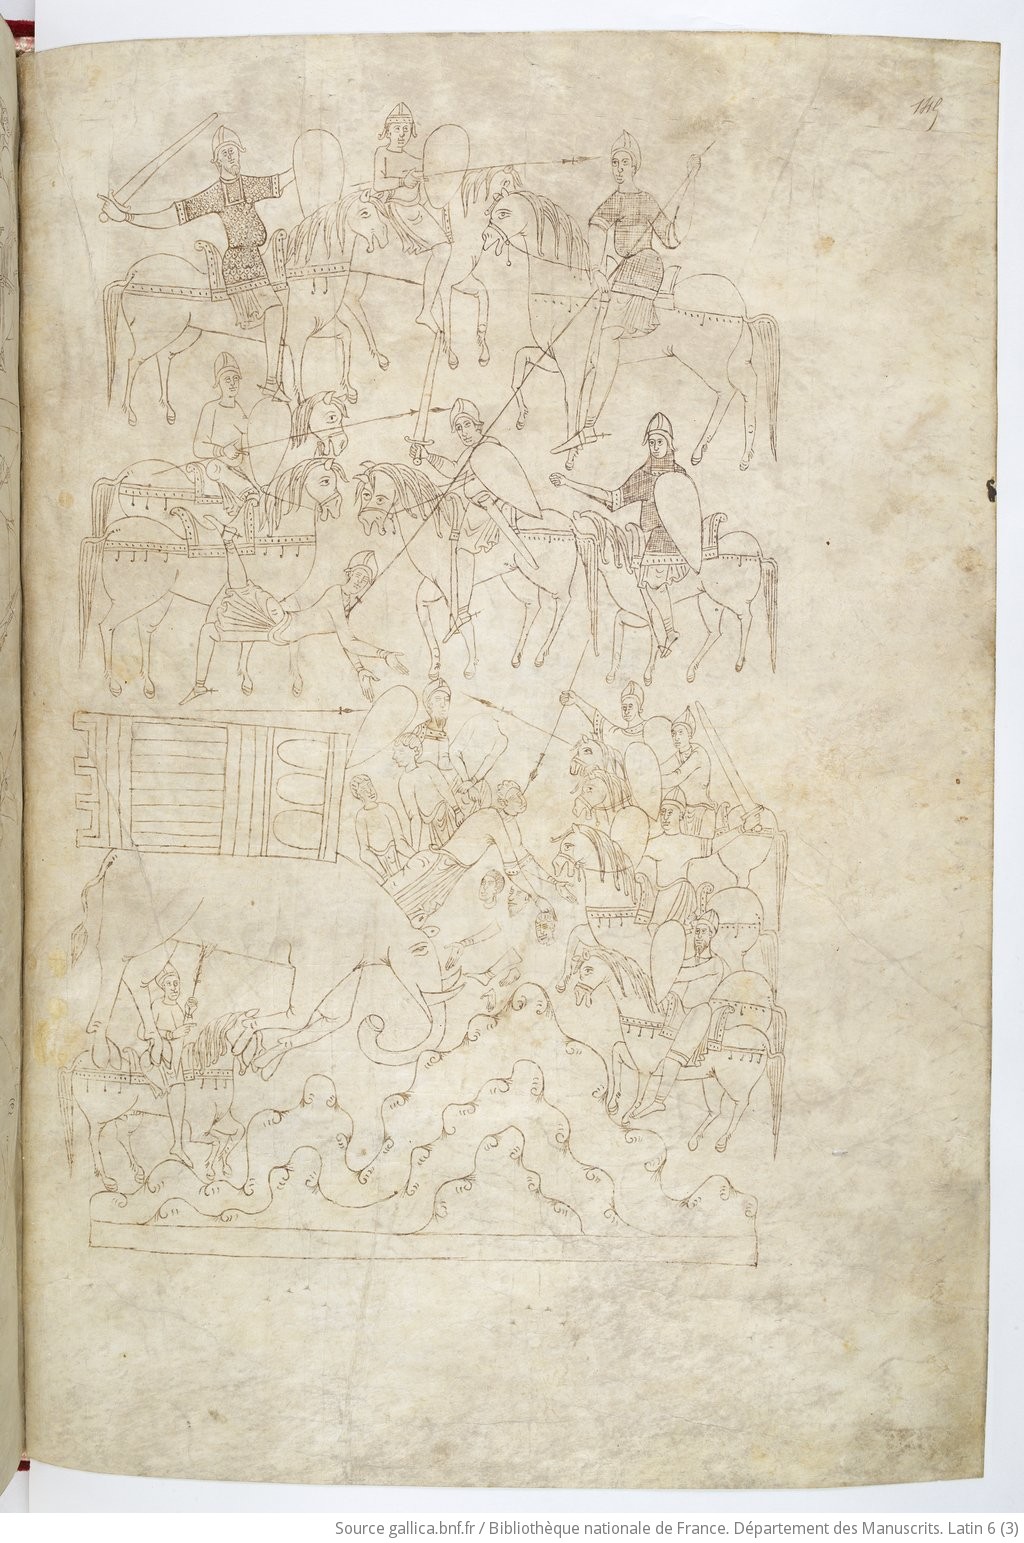 145
Source gallica.bnf.fr / Bibliothèque nationale de France. Département des Manuscrits. Latin 6 (3)